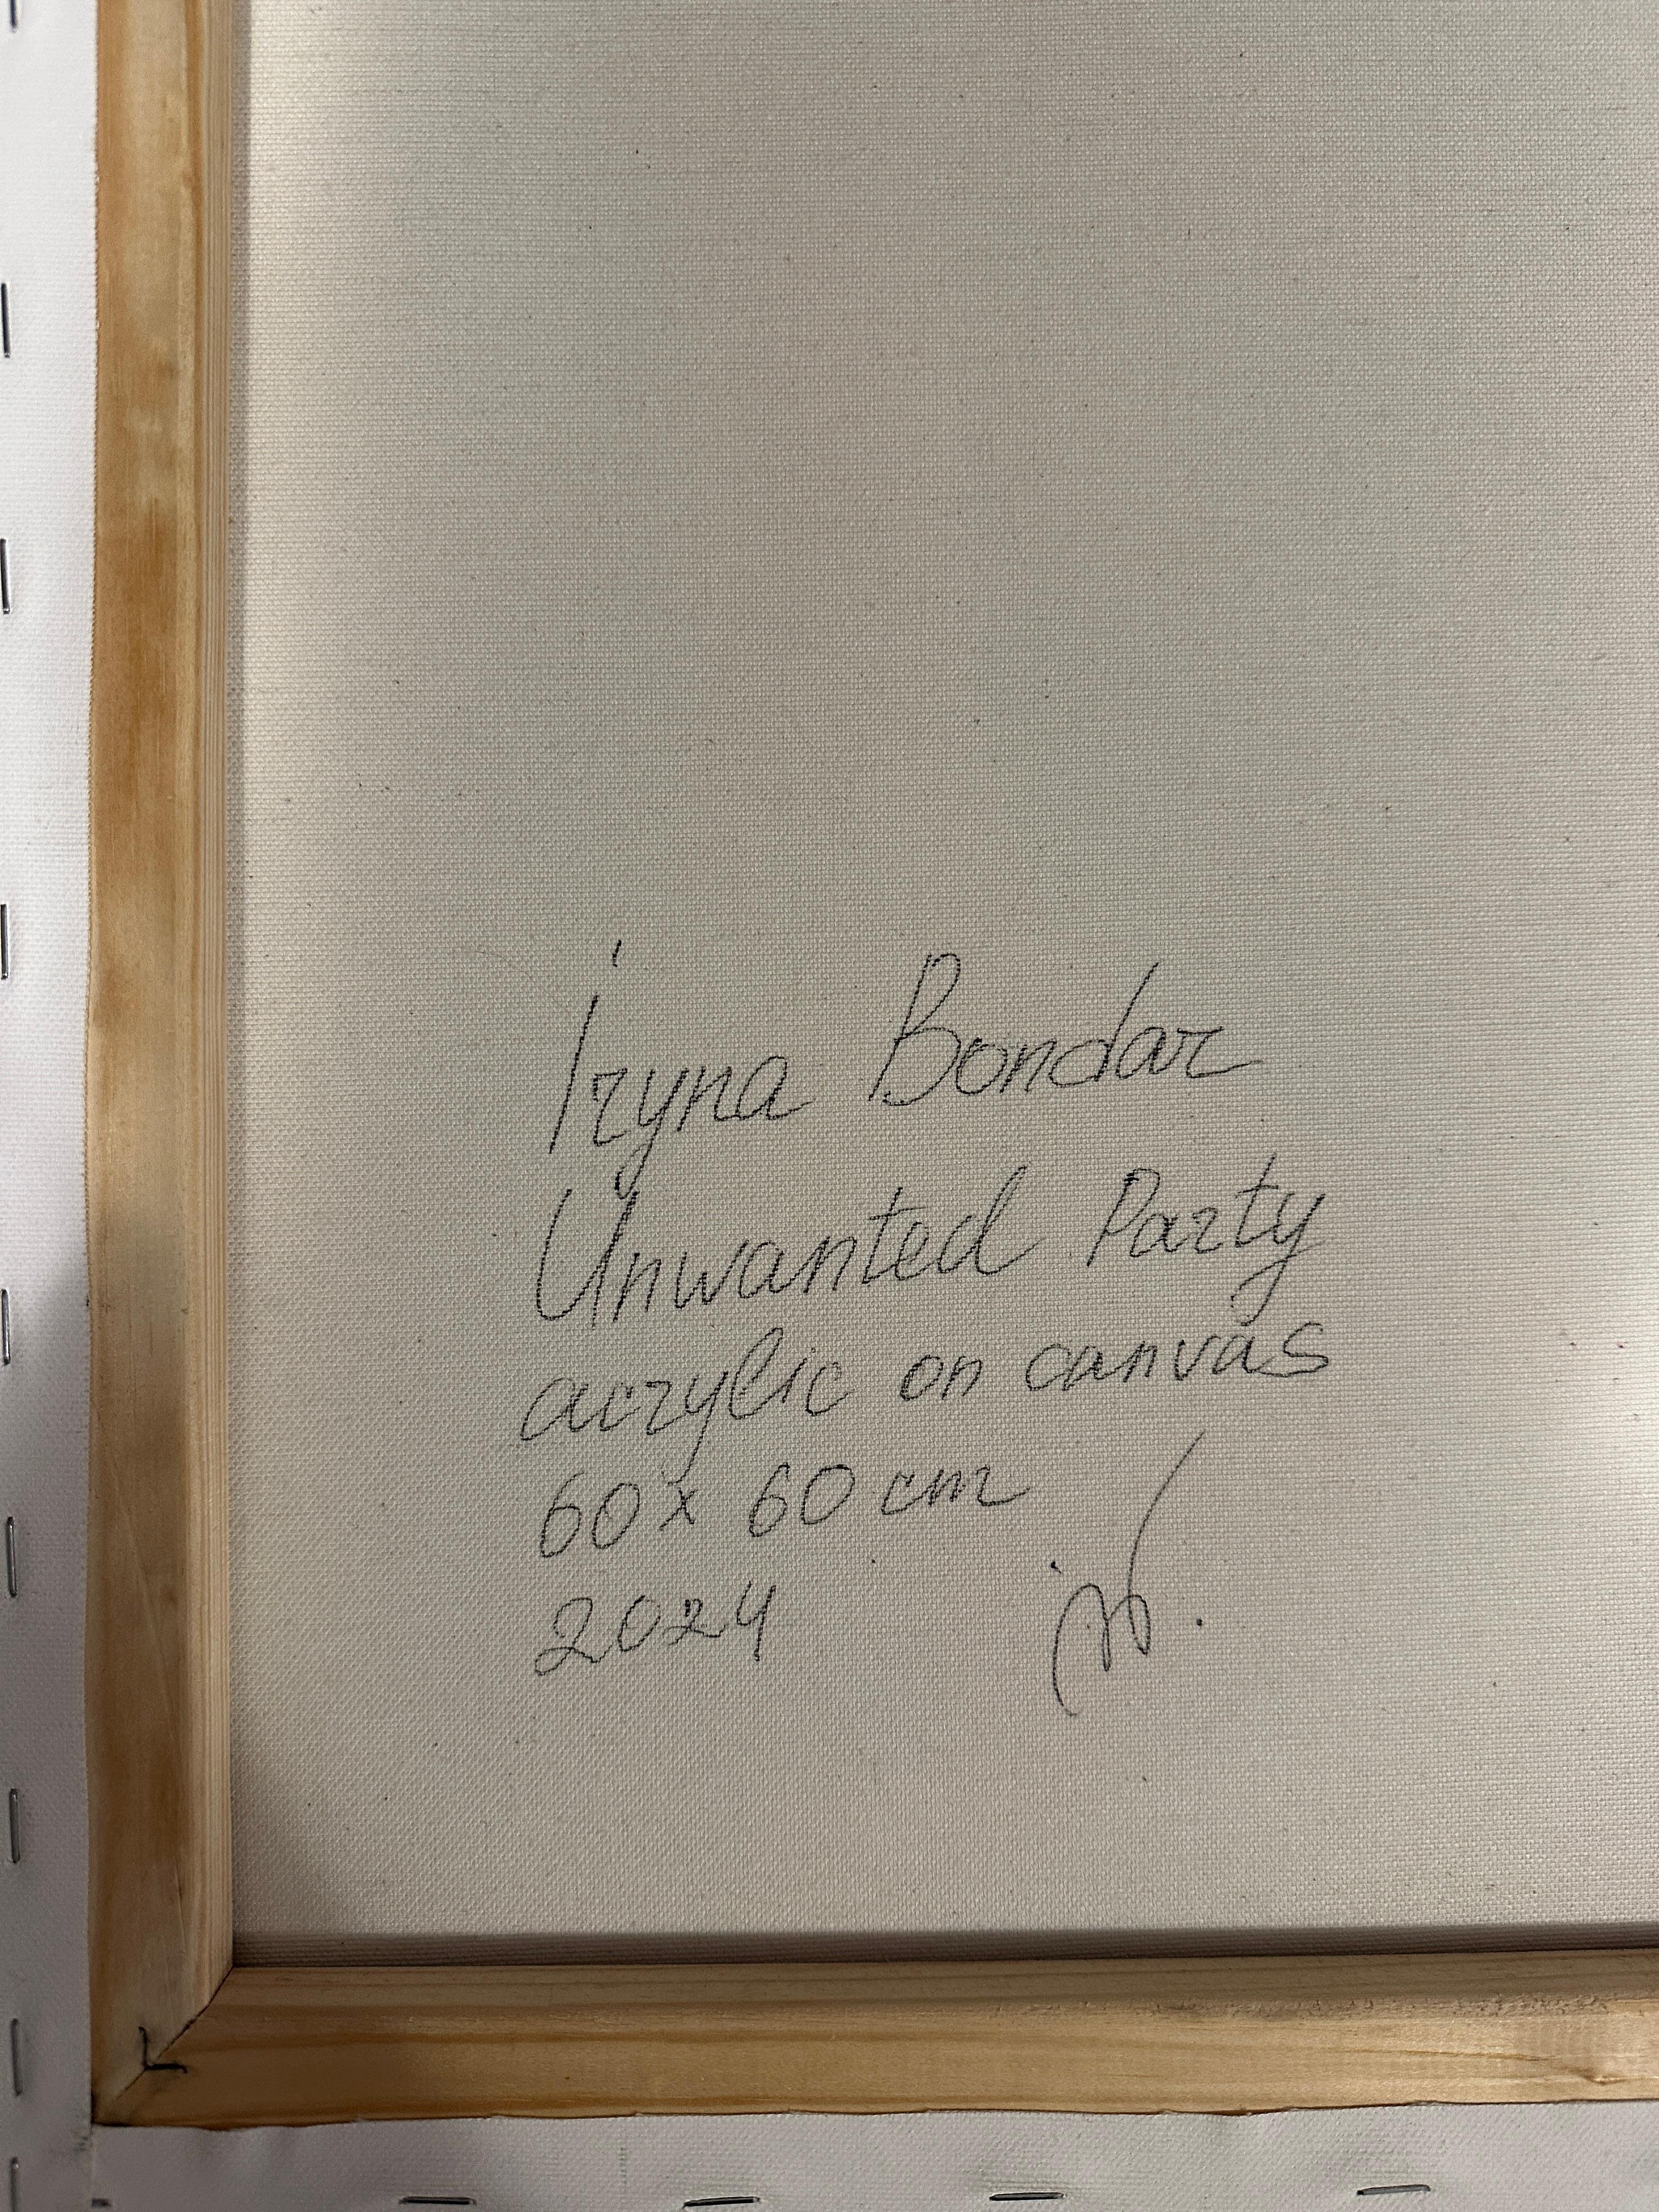 Iryna Bondar
Unwanted Party
acrylic on canvas
60x60 cm
2024